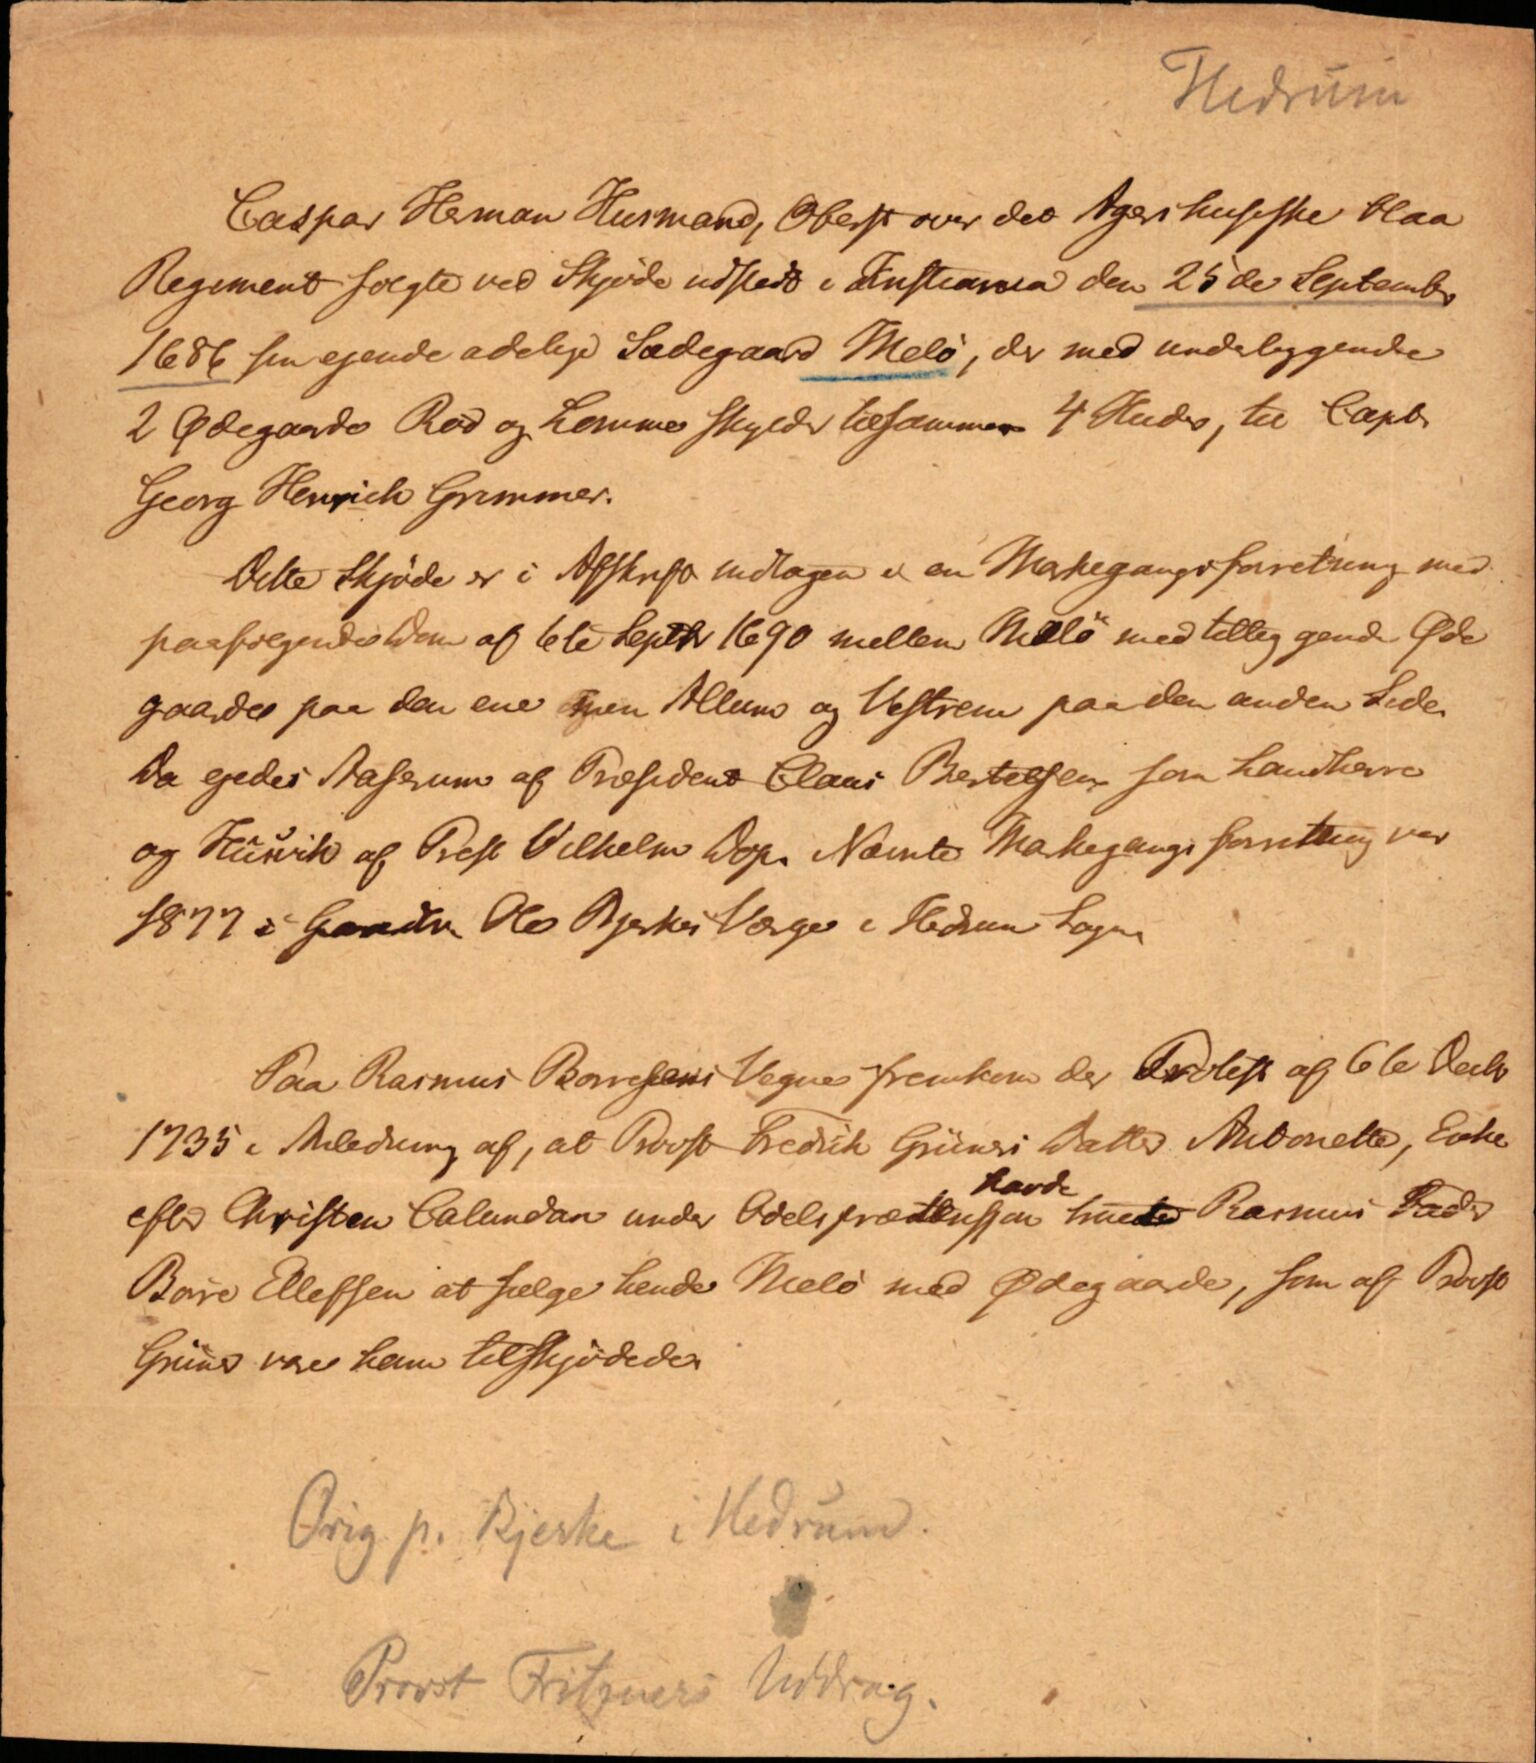 Hedrum
Caspar Herman Husmand, Oberst over det Agershusiske blaa
Regiment solgte ved Skjøde udstedt i Christiania den 25de September
1686 sin eiende adelige Sædegaard Melö, der med underliggende
2 Ødegaarde Röd og Lomme skylder tilsammen 4 Huder, til Capt.
Georg Henrich Grimmer.
Dette Skjöde er i Afskrift indtagen i en Markegangsforretning med
paafølgende Dom af 6te Septbr 1690 mellem Melö med tilliggende Øde
gaarde paa den ene og Allum og Vestrem paa den anden Side.
Da eiedes Aaserum af Præsident Claus Bertelsen som Landherre
og Husvik af Præst Vilhelm Dop. Nævnte Markegangsforretning var
1877 i Ole Bjerkes Værge i Hedrum Sogn
Paa Rasmus Borresens Vegne fremkom der Protest af 6te Decbr
1735 i Anledning af, at Provst Fredrik Grüners Datter Antonette, Enke
efter Christen Calundan under Odelsprætension havde Rasmus Fader
Borre Ellefsen at sælge hende Melö med Ødegaarde, som af Provst
Grüner vare ham tilskjödede.
Orig p. Bjerke i Hedrum.
Provst Fritzners Uddrag.